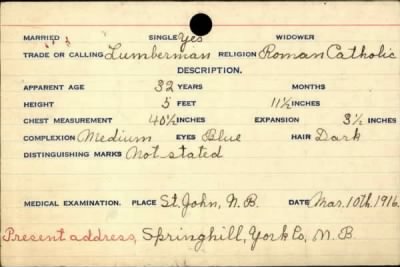 MARRIED SINGLE Yes WIDOWER
TRADE OR CALLING Lumberman RELIGION Roman Catholic
DESCRIPTION.
APPARENT AGE 32 YEARS MONTHS
HEIGHT 5 FEET 11½ INCHES
CHEST MEASUREMENT 40½ INCHES EXPANSION 3½ INCHES
COMPLEXION Medium EYES Blue HAIR Dark
DISTINGUISHING MARKS Not stated
MEDICAL EXAMINATION. PLACE St. John, N.B. DATE Mar. 10th. 1916.
Present address, Springhill, York Co, N.B.